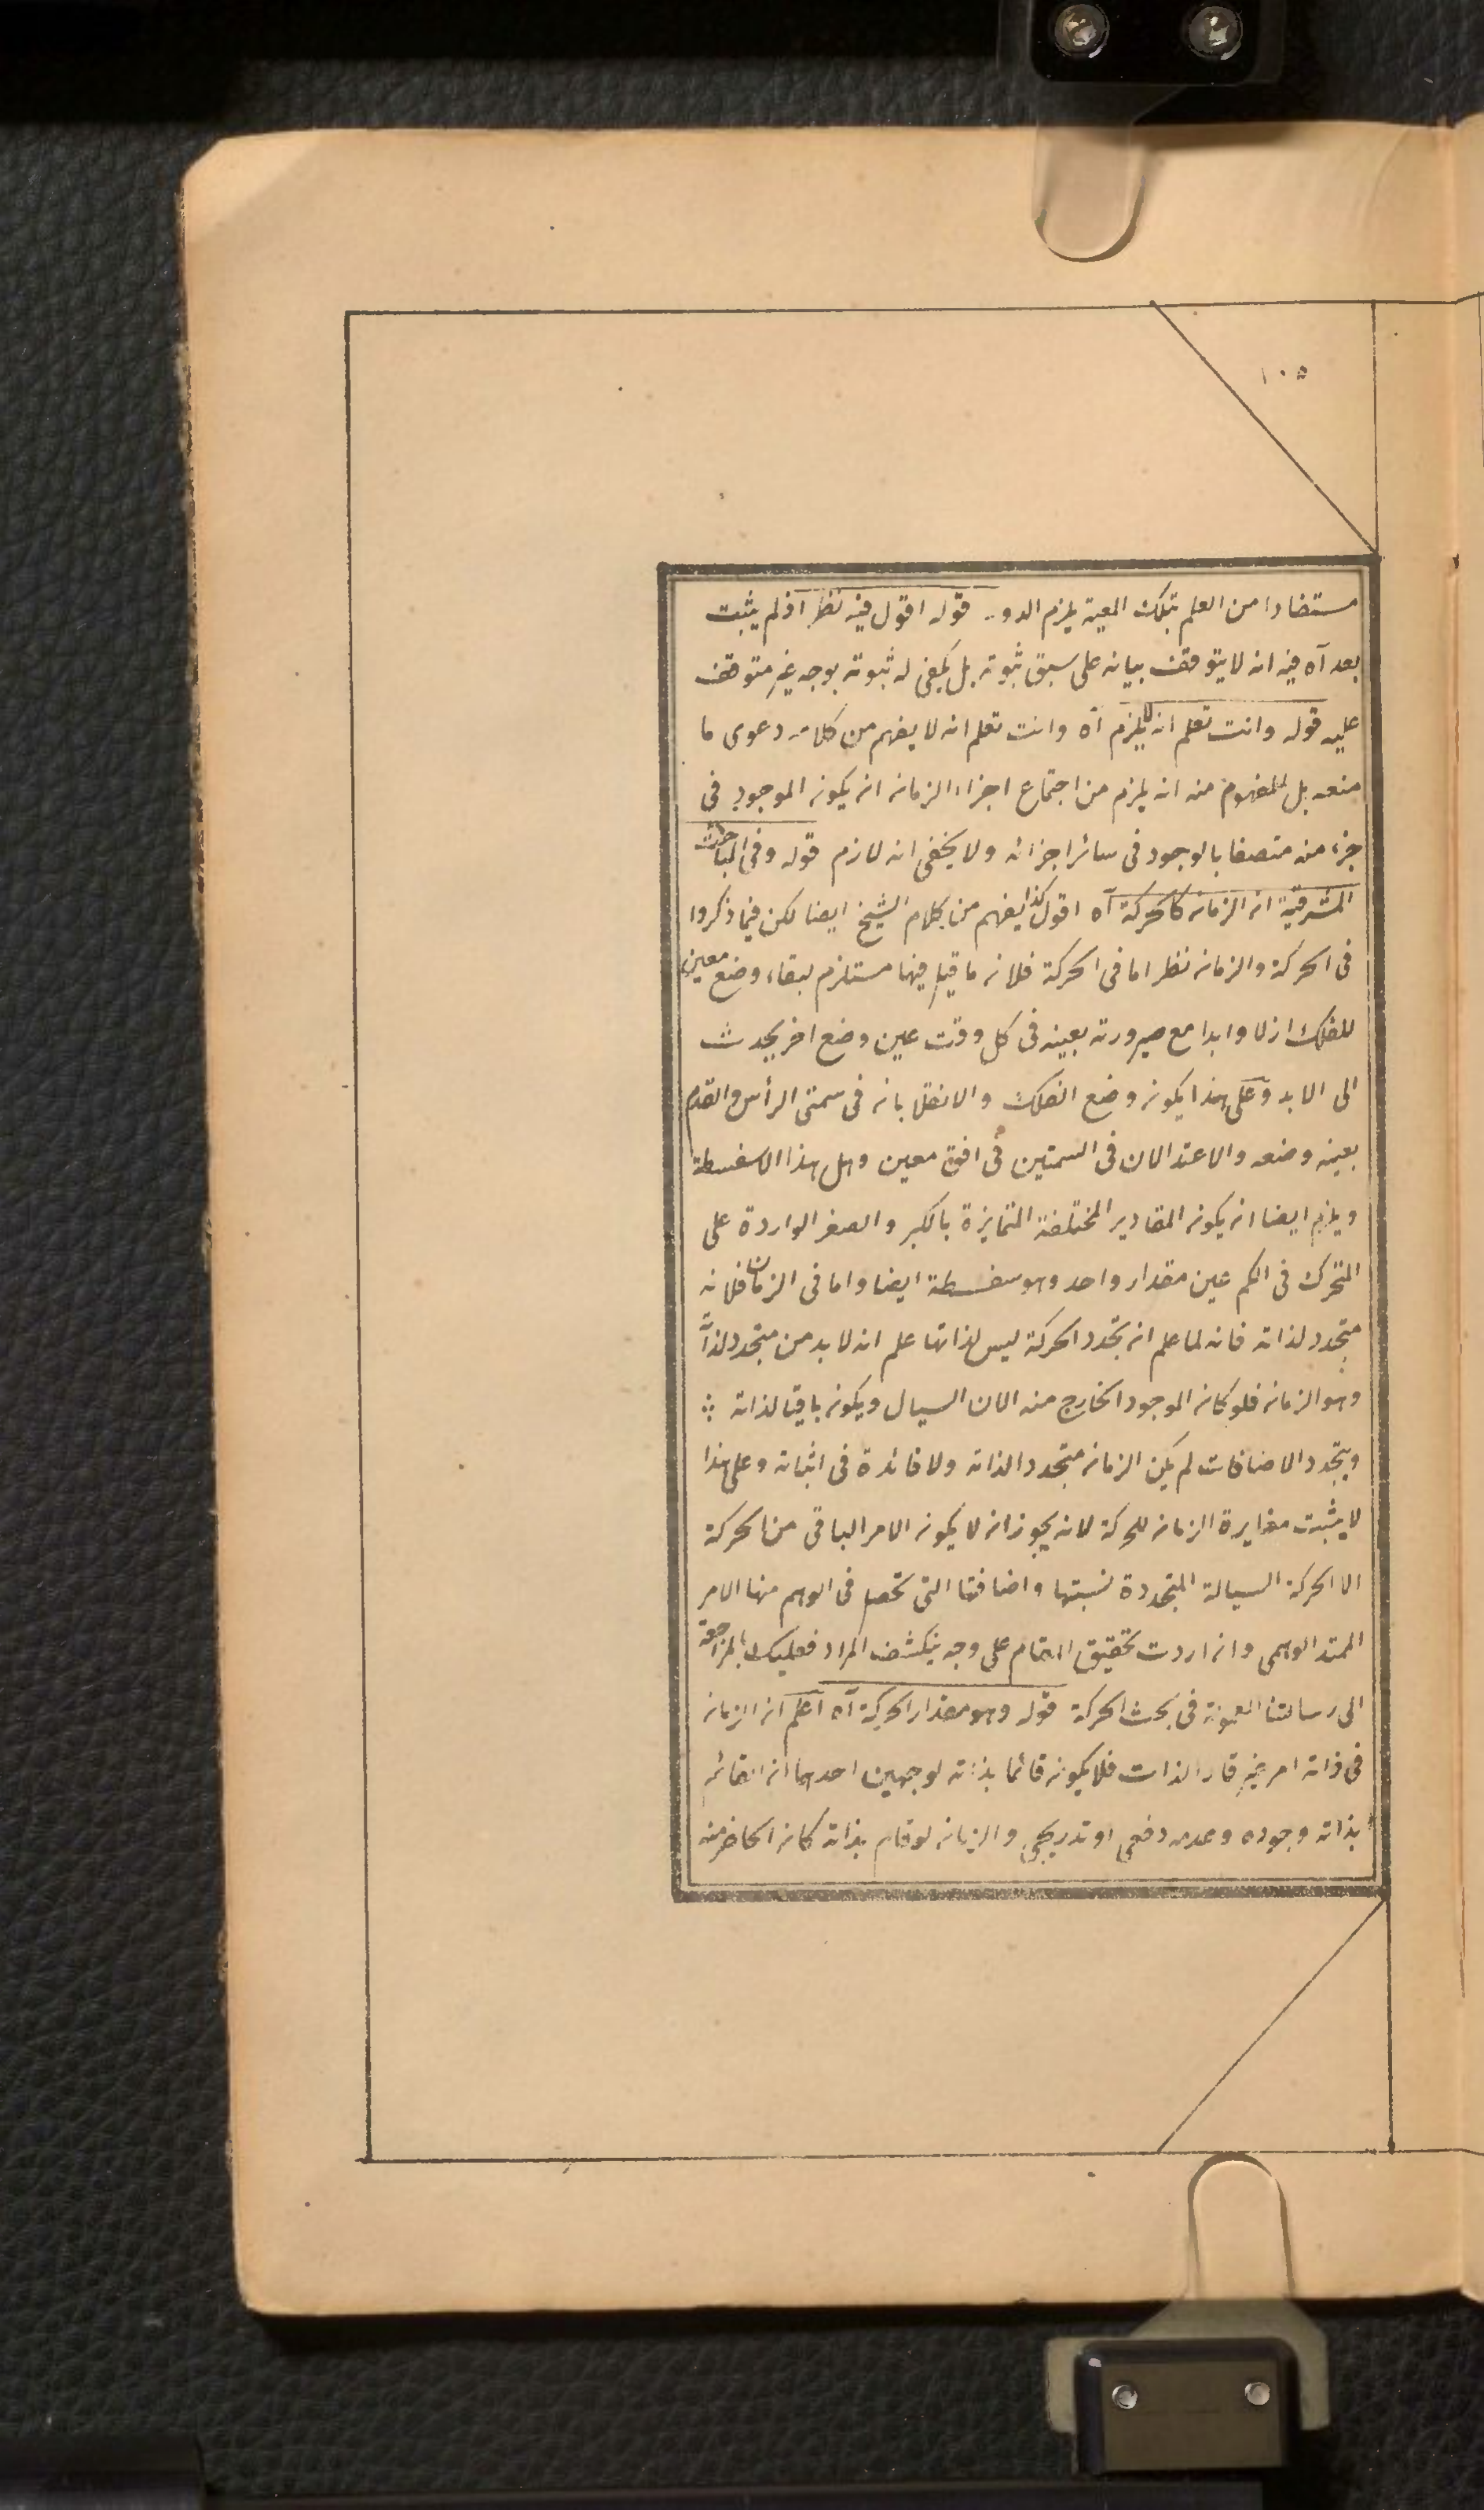 ١٠٥
مستفادا من العلم بتلك المعية يلزم الدور قوله اقول فيه نظر اذ لم يثبت
بعد آه فيه انه لا يتوقف بيانه على سبق ثبوته بل يكفى له ثبوته بوجه غير متوقف
عليه قوله وانت تعلم انه لا يلزم آه وانت تعلم انه لا يفهم من كلامه دعوى ما
منعه بل المفهوم منه انه يلزم من اجتماع اجزاء الزمان ان يكون الموجود فى
جزء منه متصفا بالوجود فى سائر اجزائه ولا يخفى انه لازم قوله وفى المباحث
المشرقية ان الزمان كالحركة آه اقول كذا يفهم من كلام الشيخ ايضا لكن فيما ذكروا
فى الحركة والزمان نظر اما فى الحركة فلان ما قيل فيها مستلزم لبقاء وضع معين
للفلك ازلا وابدا مع صيرورته بعينه فى كل وقت عين وضع اخر يحدث
الى الابد وعلى هذا يكون وضع الفلك والانقلابان فى سمتى الرأس والقدم
بعينه وضعه والاعتدالان فى السمتين فى افق معين وهل هذا الا سفسطة
ويلزم ايضا ان يكون المقادير المختلفة المتمايزة بالكبر والصغر الواردة على
المتحرك فى الكم عين مقدار واحد وهو سفسطة ايضا واما فى الزمان فلانه
متجدد لذاته فانه لما علم ان تجدد الحركة ليس لذاتها علم انه لا بد من متجدد لذاته
وهو الزمان فلو كان الموجود الخارج منه الان السيال ويكون باقيا لذاته
ويتجدد الاضافات لم يكن الزمان متجدد الذاته ولا فائدة فى اثباته وعلى هذا
لا يثبت مغايرة الزمان للحركة لانه يجوز ان لا يكون الامر الباقى من الحركة
الا الحركة السيالة المتجددة نسبتها واضافتها التى تحصل فى الوهم منها الامر
الممتد الوهمى وان اردت تحقيق المقام على وجه ينكشف المراد فعليك بالمراجعة
الى رسالتنا المعمولة فى بحث الحركة قوله وهو مقدار الحركة آه اعلم ان الزمان
فى ذاته امر غير قار الذات فلا يكون قائما بذاته لوجهين احدهما ان القائم
بذاته وجوده وعدمه دفعى او تدريجى والزمان لو قام بذاته كان الحاضر منه